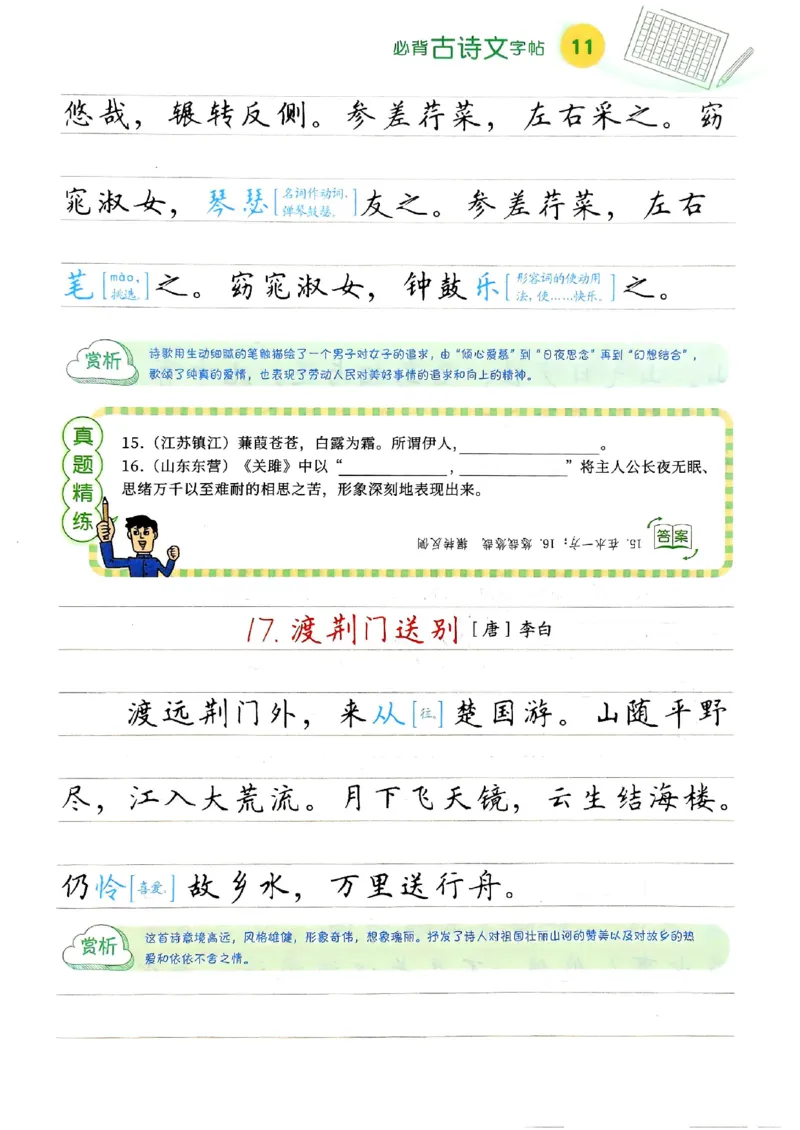 必背古诗文字帖 11
悠哉，辗转反侧。参差荇菜，左右采之。窈
窕淑女，琴瑟[名词作动词、弹琴鼓瑟。]友之。参差荇菜，左右
笔[mào，挑选。]之。窈窕淑女，钟鼓乐[形容词的使动用法，使……快乐。]之。
赏析
诗歌用生动细腻的笔触描绘了一个男子对女子的追求，由“倾心爱慕”到“日夜思念”再到“幻想结合”，
歌颂了纯真的爱情，也表现了劳动人民对美好事情的追求和向上的精神。
真题精练
15.（江苏镇江）蒹葭苍苍，白露为霜。所谓伊人，____________。
16.（山东东营）《关雎》中以“____________，____________”将主人公长夜无眠、
思绪万千以至难耐的相思之苦，形象深刻地表现出来。
答案
15. 在水一方；16. 悠哉悠哉 辗转反侧
17.渡荆门送别[唐]李白
渡远荆门外，来从[往。]楚国游。山随平野
尽，江入大荒流。月下飞天镜，云生结海楼。
仍怜[喜爱。]故乡水，万里送行舟。
赏析
这首诗意境高远，风格雄健，形象奇伟，想象瑰丽。抒发了诗人对祖国壮丽山河的赞美以及对故乡的热
爱和依依不舍之情。